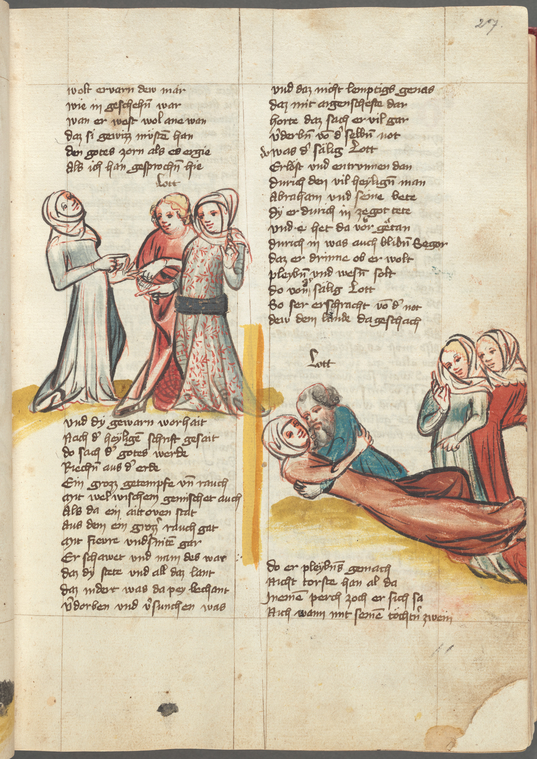 27.
wolt ervarn dew mar
wie in geschehn war
wan er west wol ane wan
daz si gewis müste han
den gotes zorn als es ergie
als ich han gesprochn hie
Lott
und dy gewarn worhait
Nach d' heyligen schrift gesait
do sach d' gotes werde
Riechn aus d' erde
Ein groz getempfe un rauch
mit welwischem gemischet auch
Als da ein aitoven stat
Aus dem ein groz rauch gat
mit fieore und
Er schawet und nam des war
daz dy stete und all daz lant
daz inder was da pey bechant
v'dorben und v'sunchen was
und daz nicht lemptigs genas
daz mit
horte daz sach er vil gar
v'derbn vo d' selbn not
do was d' salig Lott
Erlost und entrunnen dan
durich den vil heyligen man
Abraham und seine bete
dy er durich in ze got tete
und e het da vor getan
durich in was auch blibn Segor
daz er drinne ob er wolt
pleybn und wesn solt
do von salig Lott
So ser erschracht vo d' not
dew dem lande da geschach
Lott
do er pleybns gemach
Nicht torste han al da
perch zoch er sich sa
Sich wann mit seine tochtn zwein